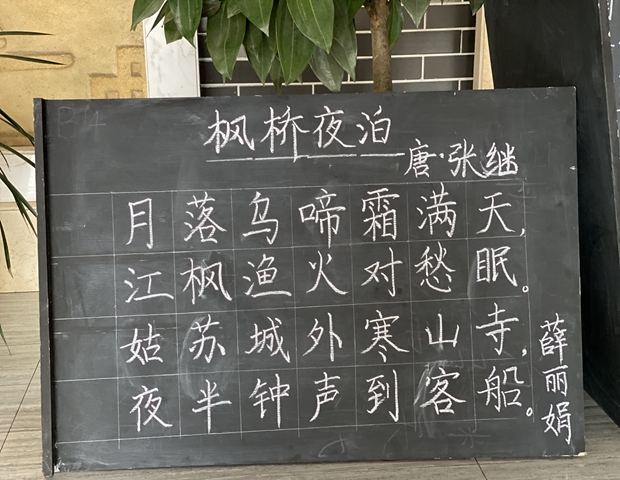 枫桥夜泊
唐·张继
月落乌啼霜满天,
江枫渔火对愁眠。
姑苏城外寒山寺,
夜半钟声到客船。
薛丽娟